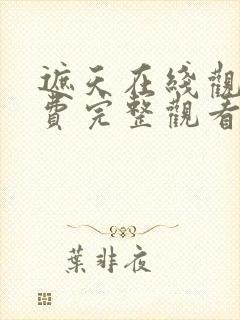 遮天在綫觀
費完整觀看
葉非夜